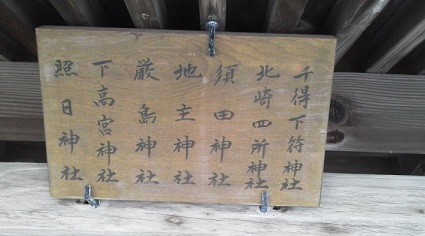 千得下符神社
北崎四所神社
須田神社
地主神社
厳島神社
下高宮神社
照日神社